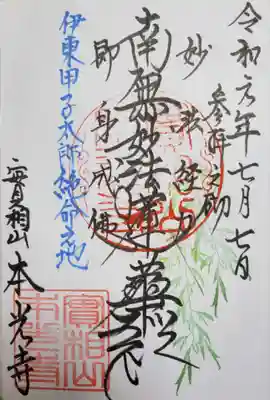 令和元年七月七日
参拝之砌
妙法経力
南無妙法蓮華経
即身成佛
伊東甲子太郎絶命之地
實相山 本光寺